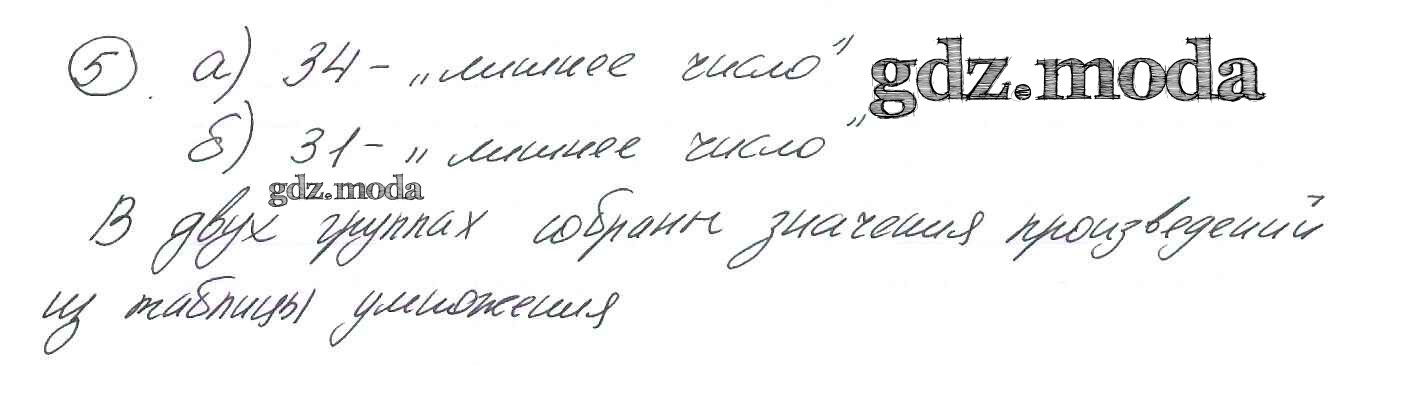 5 а) 34 - „лишнее число" gdz.moda
б) 31 - „лишнее число"
gdz.moda
В двух группах собраны значения произведений
из таблицы умножения